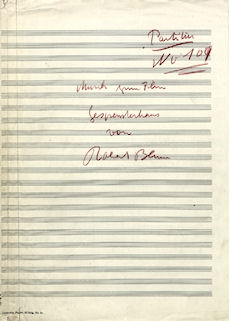 Partitur
No 109
Musik zum Film
Gespensterhaus
von
Robert Blum